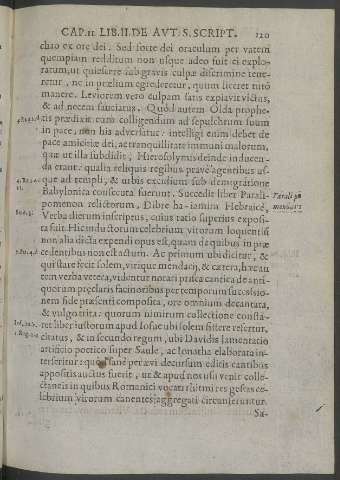 CAP. II. LIB. II. DE AVT. S. SCRIPT. 120
chao ex ore dei. Sed forte dei oraculum per vatem
quempiam redditum non usque adeo fuit ei explo-
ratum, ut quiescere sub gravis culpæ discrimine tene-
retur, ne in prælium egrederetur, quum liceret nitò
manere. Leviorem vero culpam satis expiavit victus,
& ad necem sauciatus. Quod autem Olda prophe-
tis prædixit eum colligendum ad sepulchrum suum
in pace, non hia adversatur: intelligi enim debet de
pace amicitiæ dei, ac tranquillitate immuni malorum,
quæ ut illa subdidit; Hierosolymis deinde inducen-
da erant: qualia reliquis regibus prave agentibus us-
que ad templi, & urbis excidium sub demigratione
Babylonica consecuta fuerunt. Succedit liber Parali-
pomenon relictorum, Dibre ha-iamim Hebraicè,
Verba dierum inscriptus, cuius ratio superius exposi-
ta fuit. Hic inductorum celebrium vitorum loquentis
non alia dicta expendi opus est, quam de quibus in præ
cedentibus non est actum. Ac primum ubi dicitur, &
qui stare fecit solem, virique mendacij, & cætera, hæc au
tem verba vetera, videntur notari prisca cantica de anti-
quorum præclaris facinoribus per temporum successio-
nem fide præsenti composita, ore omnium decantata,
& vulgo trita: quorum nimirum collectione consta-
ret liber iustorum apud Iosue ubi solem sistere refertur,
citatus, & in secundo regum, ubi Davidis lamentatio
artificio poetico super Saule, ac Ionatha elaborata in-
terseritur: quem sanè per ævi decursum editis cantibus
appositis auctus fuerit, ut & apud nos usu venit colle-
ctaneis in quibus Romanici vocati rhitmi res gestas ce-
lebrium vitorum canentes, aggregati circunferuntur.
Sa-